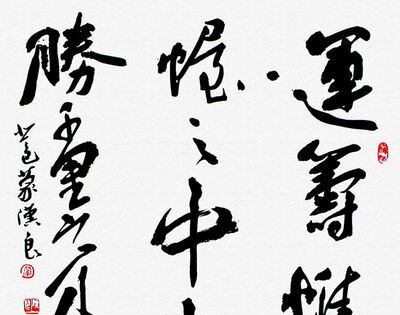 運籌帷
幄之中
勝千里之外
蒙漢良